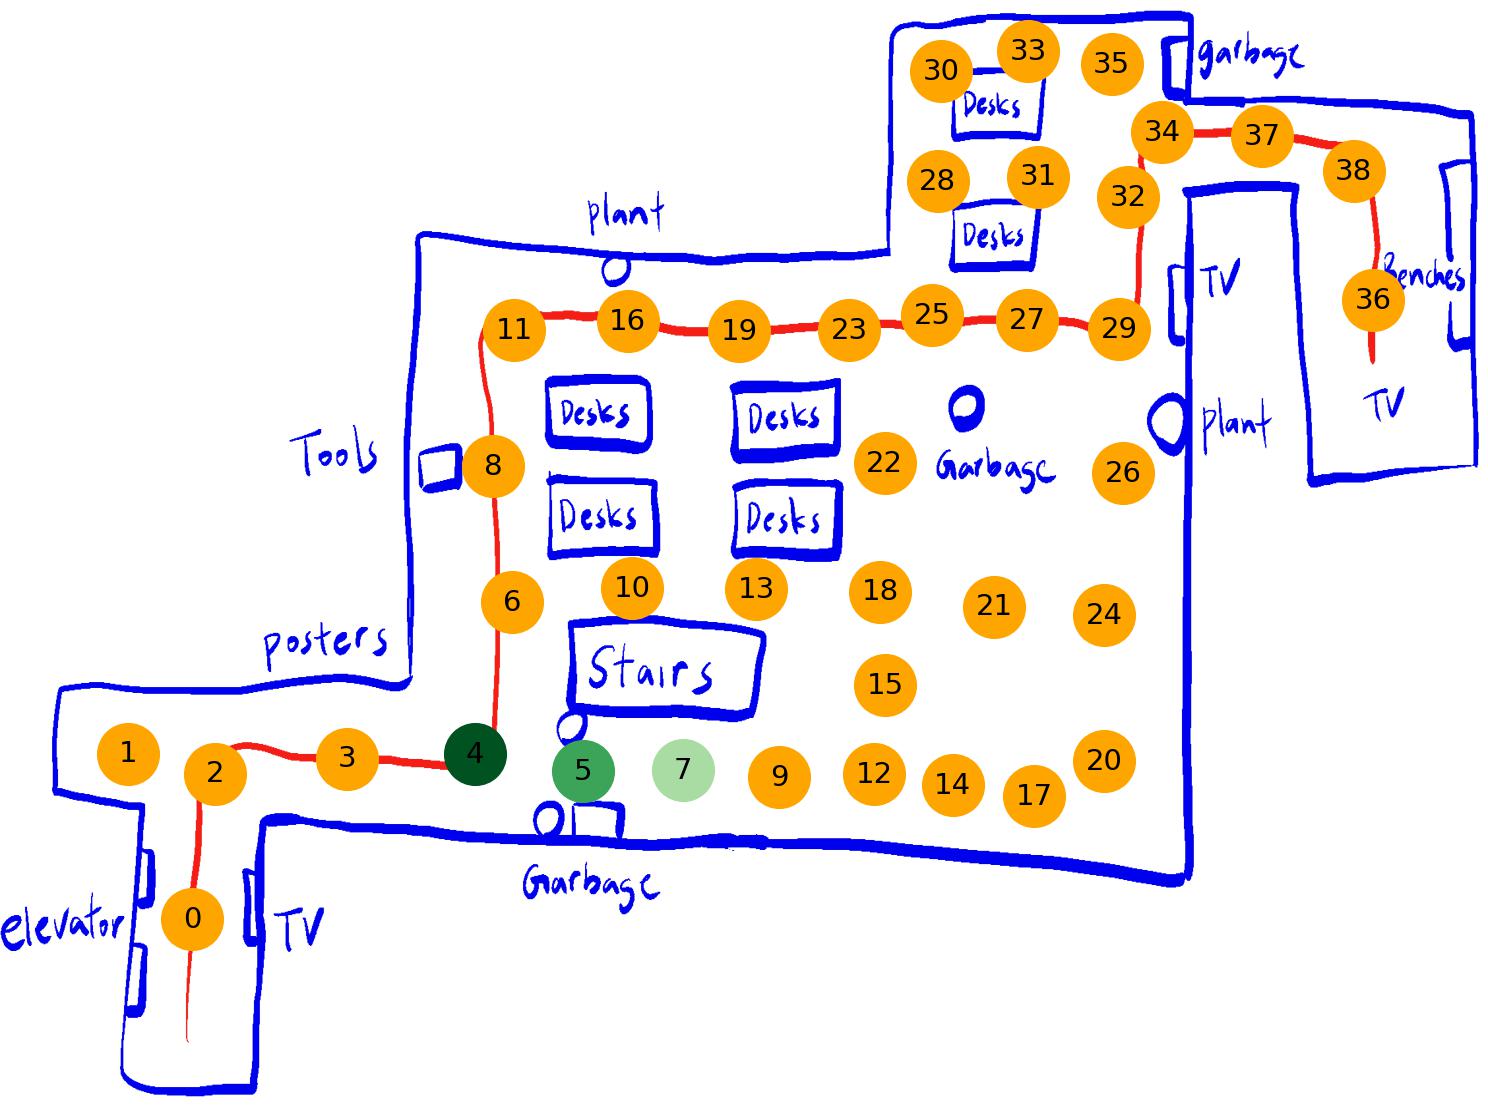 33
garbage
30
35
Desks
34
37
38
28
31
32
plant
Desks
TV
Benches
36
11
16
19
23
25
27
29
TV
Desks
Desks
plant
Tools
8
22
Garbage
26
Desks
Desks
6
10
13
18
21
24
posters
Stairs
15
1
2
3
4
5
7
9
12
14
17
20
Garbage
elevator
0
TV